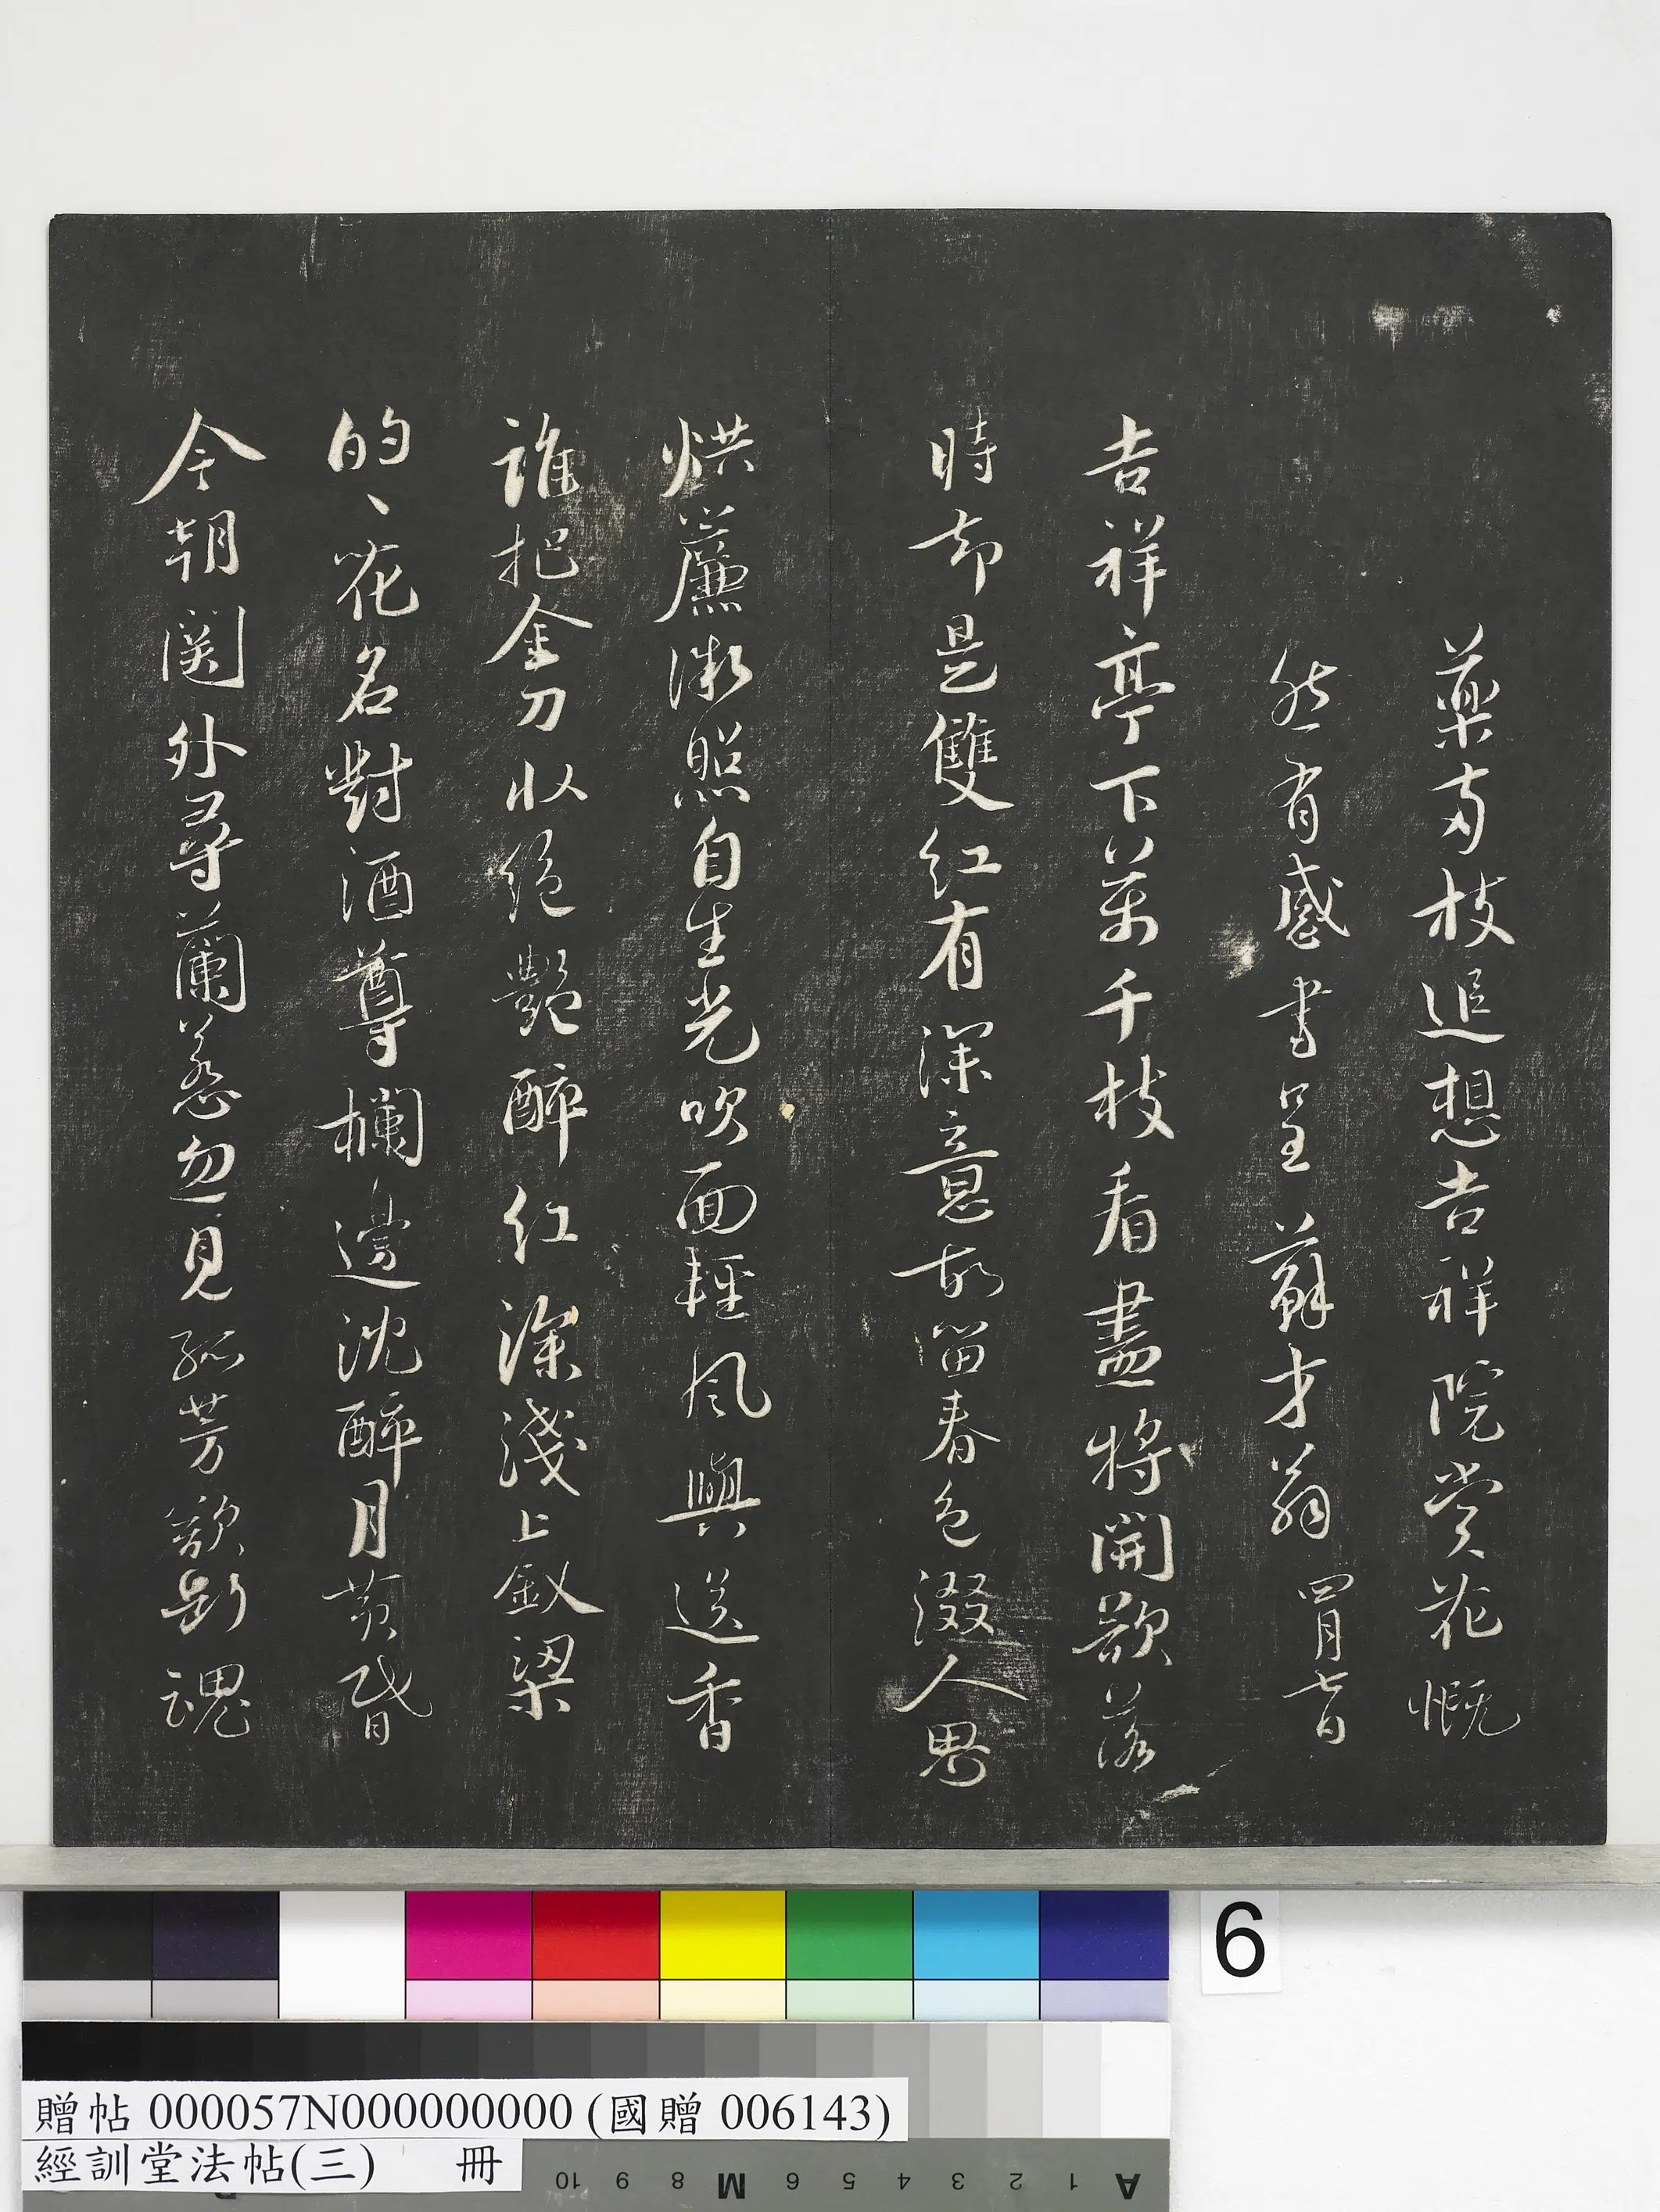 藥兩枝追想吉祥院賞花慨
然有感書呈蘇才翁四月七日
吉祥亭下萬千枝看盡將開欲落
時却是雙紅有深意故留春色綴人思
烘簾微照自生光吹面輕風與送香
誰把金刀收絕艷醉紅深淺上釵梁
的、花名對酒尊欄邊沈醉月黃昏
今朝関外尋蘭蕙忽見孤芳欲斷魂
6
贈帖 000057N000000000 (國贈 006143)
經訓堂法帖(三) 冊
A 1 2 3 4 5 6 M 8 9 10